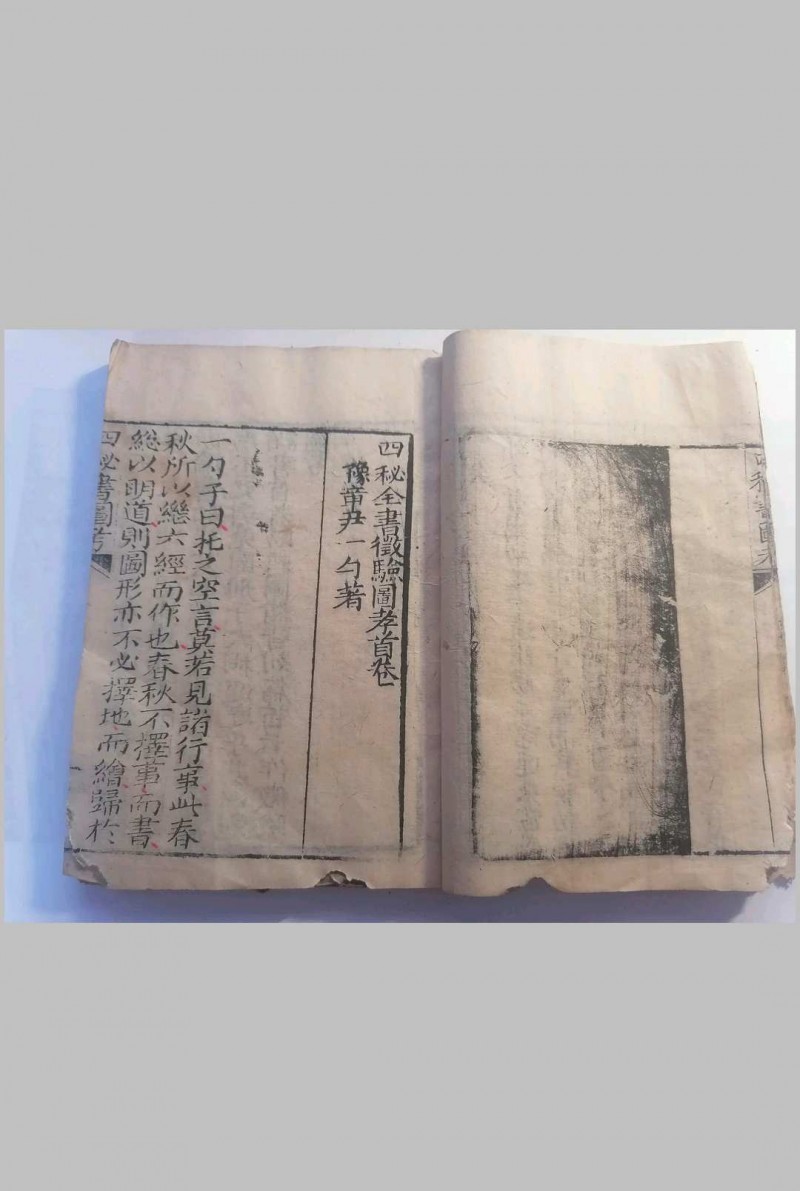 四秘全書徵驗圖考首卷
豫章尹一勺著
一勺子曰托之空言莫若見諸行事此春
秋所以繼六經而作也春秋不擇事而書
總以明道則圖形亦不必擇地而繪歸於
四秘書圖考